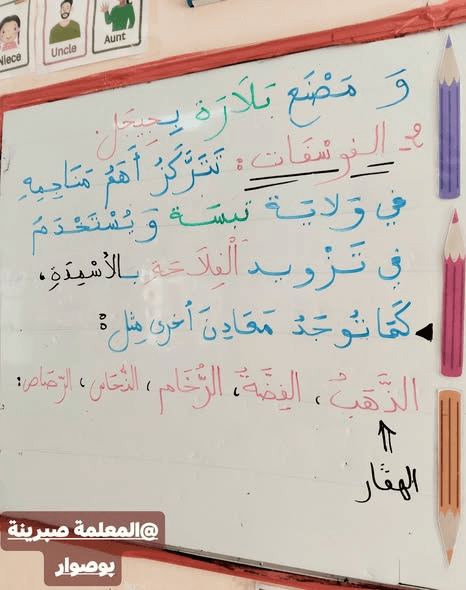 Niece
Uncle
Aunt
وَ مَصْنَع بَلَارَة بِجِيجَل.
2- الفوسْفَات: تَتَرَكَّزُ أَهَمُ مَنَاجِمِهِ
في وَلايَة تبسَة وَيُسْتَخْدَمُ
في تَزْويد الْفِلَاحَةِ بالأسْمِدَةِ،
كَمَا تُوجَدُ مَعَادِنَ أُخرى مِثل:
الذَّهَبُ، الفِضَّةُ، الرُّخَام، النُّحَاس، الرَّصَاص:
الهقار
@المعلمة صبرينة
بوصوار